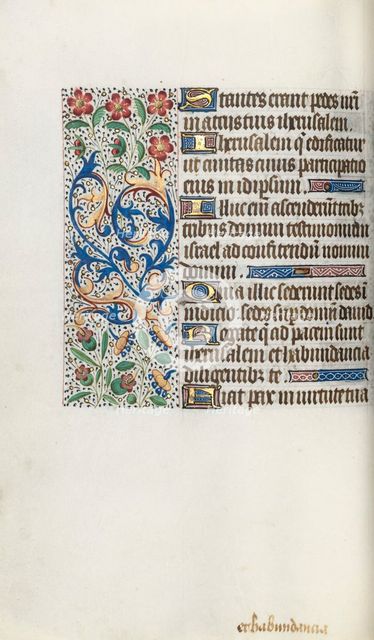 Stantes erant pedes nrī
in atriis tuis iherusalem.
Iherusalem q̄ edificatur
ut ciuitas cuius participatio
eius in idipsum.
Illuc em̄ ascenderūt tribꝫ
tribus domini testimonium
israel ad confitendū nomini
domini.
Quia illic sederunt sedes ī
iudicio: sedes sup̄ domū dauid
Rogate q̄ ad pacem sunt
iherusalem et habundancia
diligentibꝫ te.
Fiat pax in uirtute tua
et habundancia
Heritage
heritage